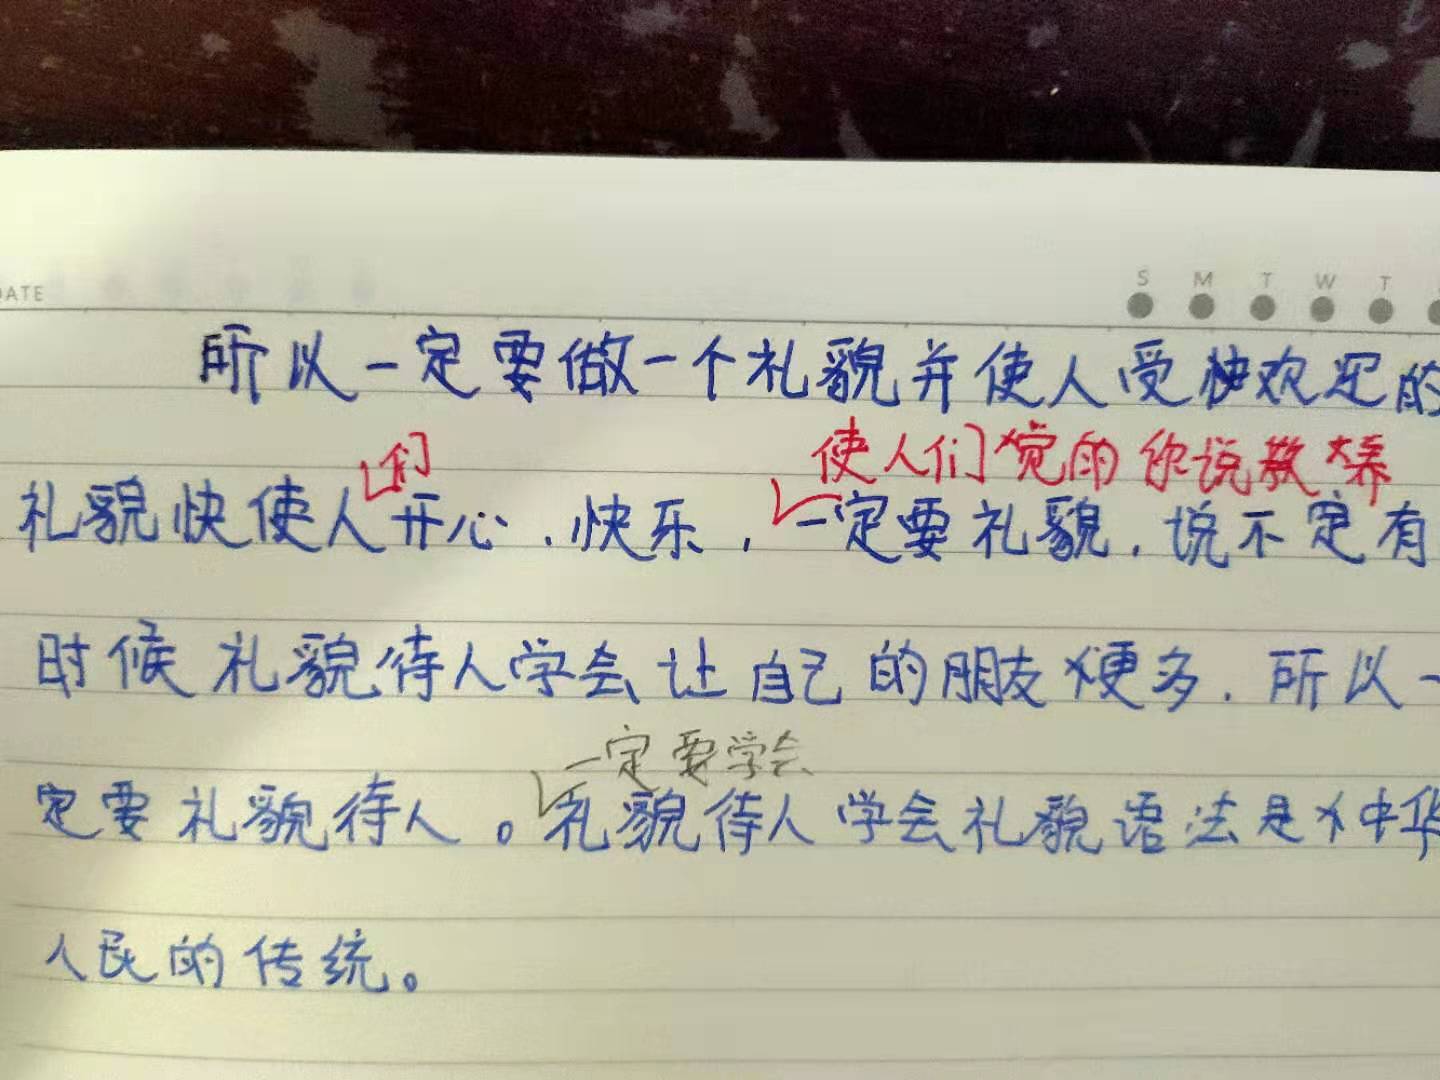 DATE
S M T W T
所以一定要做一个礼貌并使人受快欢迎的
们
使人们觉的你说教养
礼貌快使人开心、快乐，一定要礼貌，说不定有
时候礼貌待人学会让自己的朋友便多，所以一
一定要学会
定要礼貌待人。礼貌待人学会礼貌语法是中华
人民的传统。